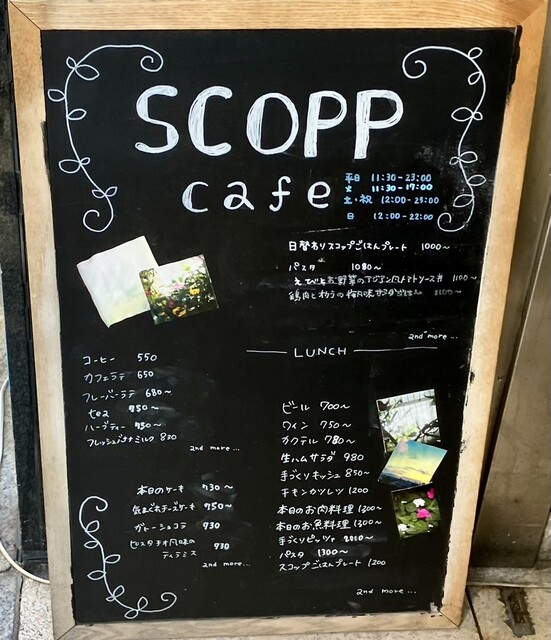 SCOPP
cafe
平日 11:30-23:00
火 11:30-17:00
土・祝 12:00-23:00
日 12:00-22:00
日替わりスコップごはんプレート 1000~
パスタ 1080~
えびとお野菜のアジアン風トマトソース丼 1100~
鶏肉と
2nd more...
LUNCH
コーヒー 550
カフェラテ 650
フレーバーラテ 680~
tea 750~
ハーブティー 750~
フレッシュバナナミルク 830
2nd more...
本日のケーキ 730~
気まぐれチーズケーキ 750~
ガトーショコラ 730
ピスタチオ風味の
ティラミス 730
2nd more...
ビール 700~
ワイン 750~
カクテル 780~
生ハムサラダ 980
手づくりキッシュ 850~
チキンカツレツ 1200
本日のお肉料理 1300~
本日のお魚料理 1300~
手づくりピッツァ
パスタ 1300~
スコップごはんプレート 1200
2nd more...